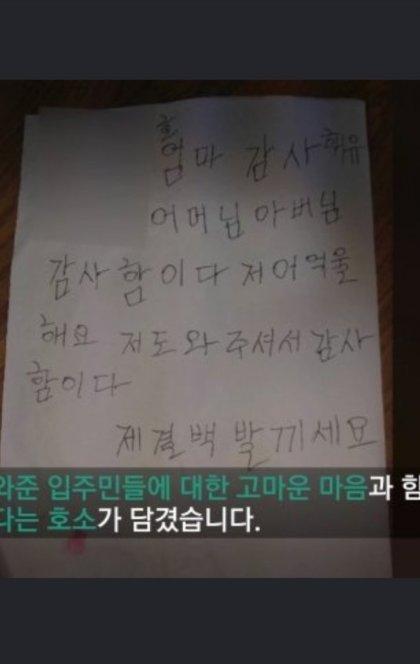 엄마 감사
어머님 아버님
감사 함이다 저어억울
해요 저도와주셔서 감사
함이다
제결백 발끼세요
와준 입주민들에 대한 고마운 마음과 함
다는 호소가 담겼습니다.